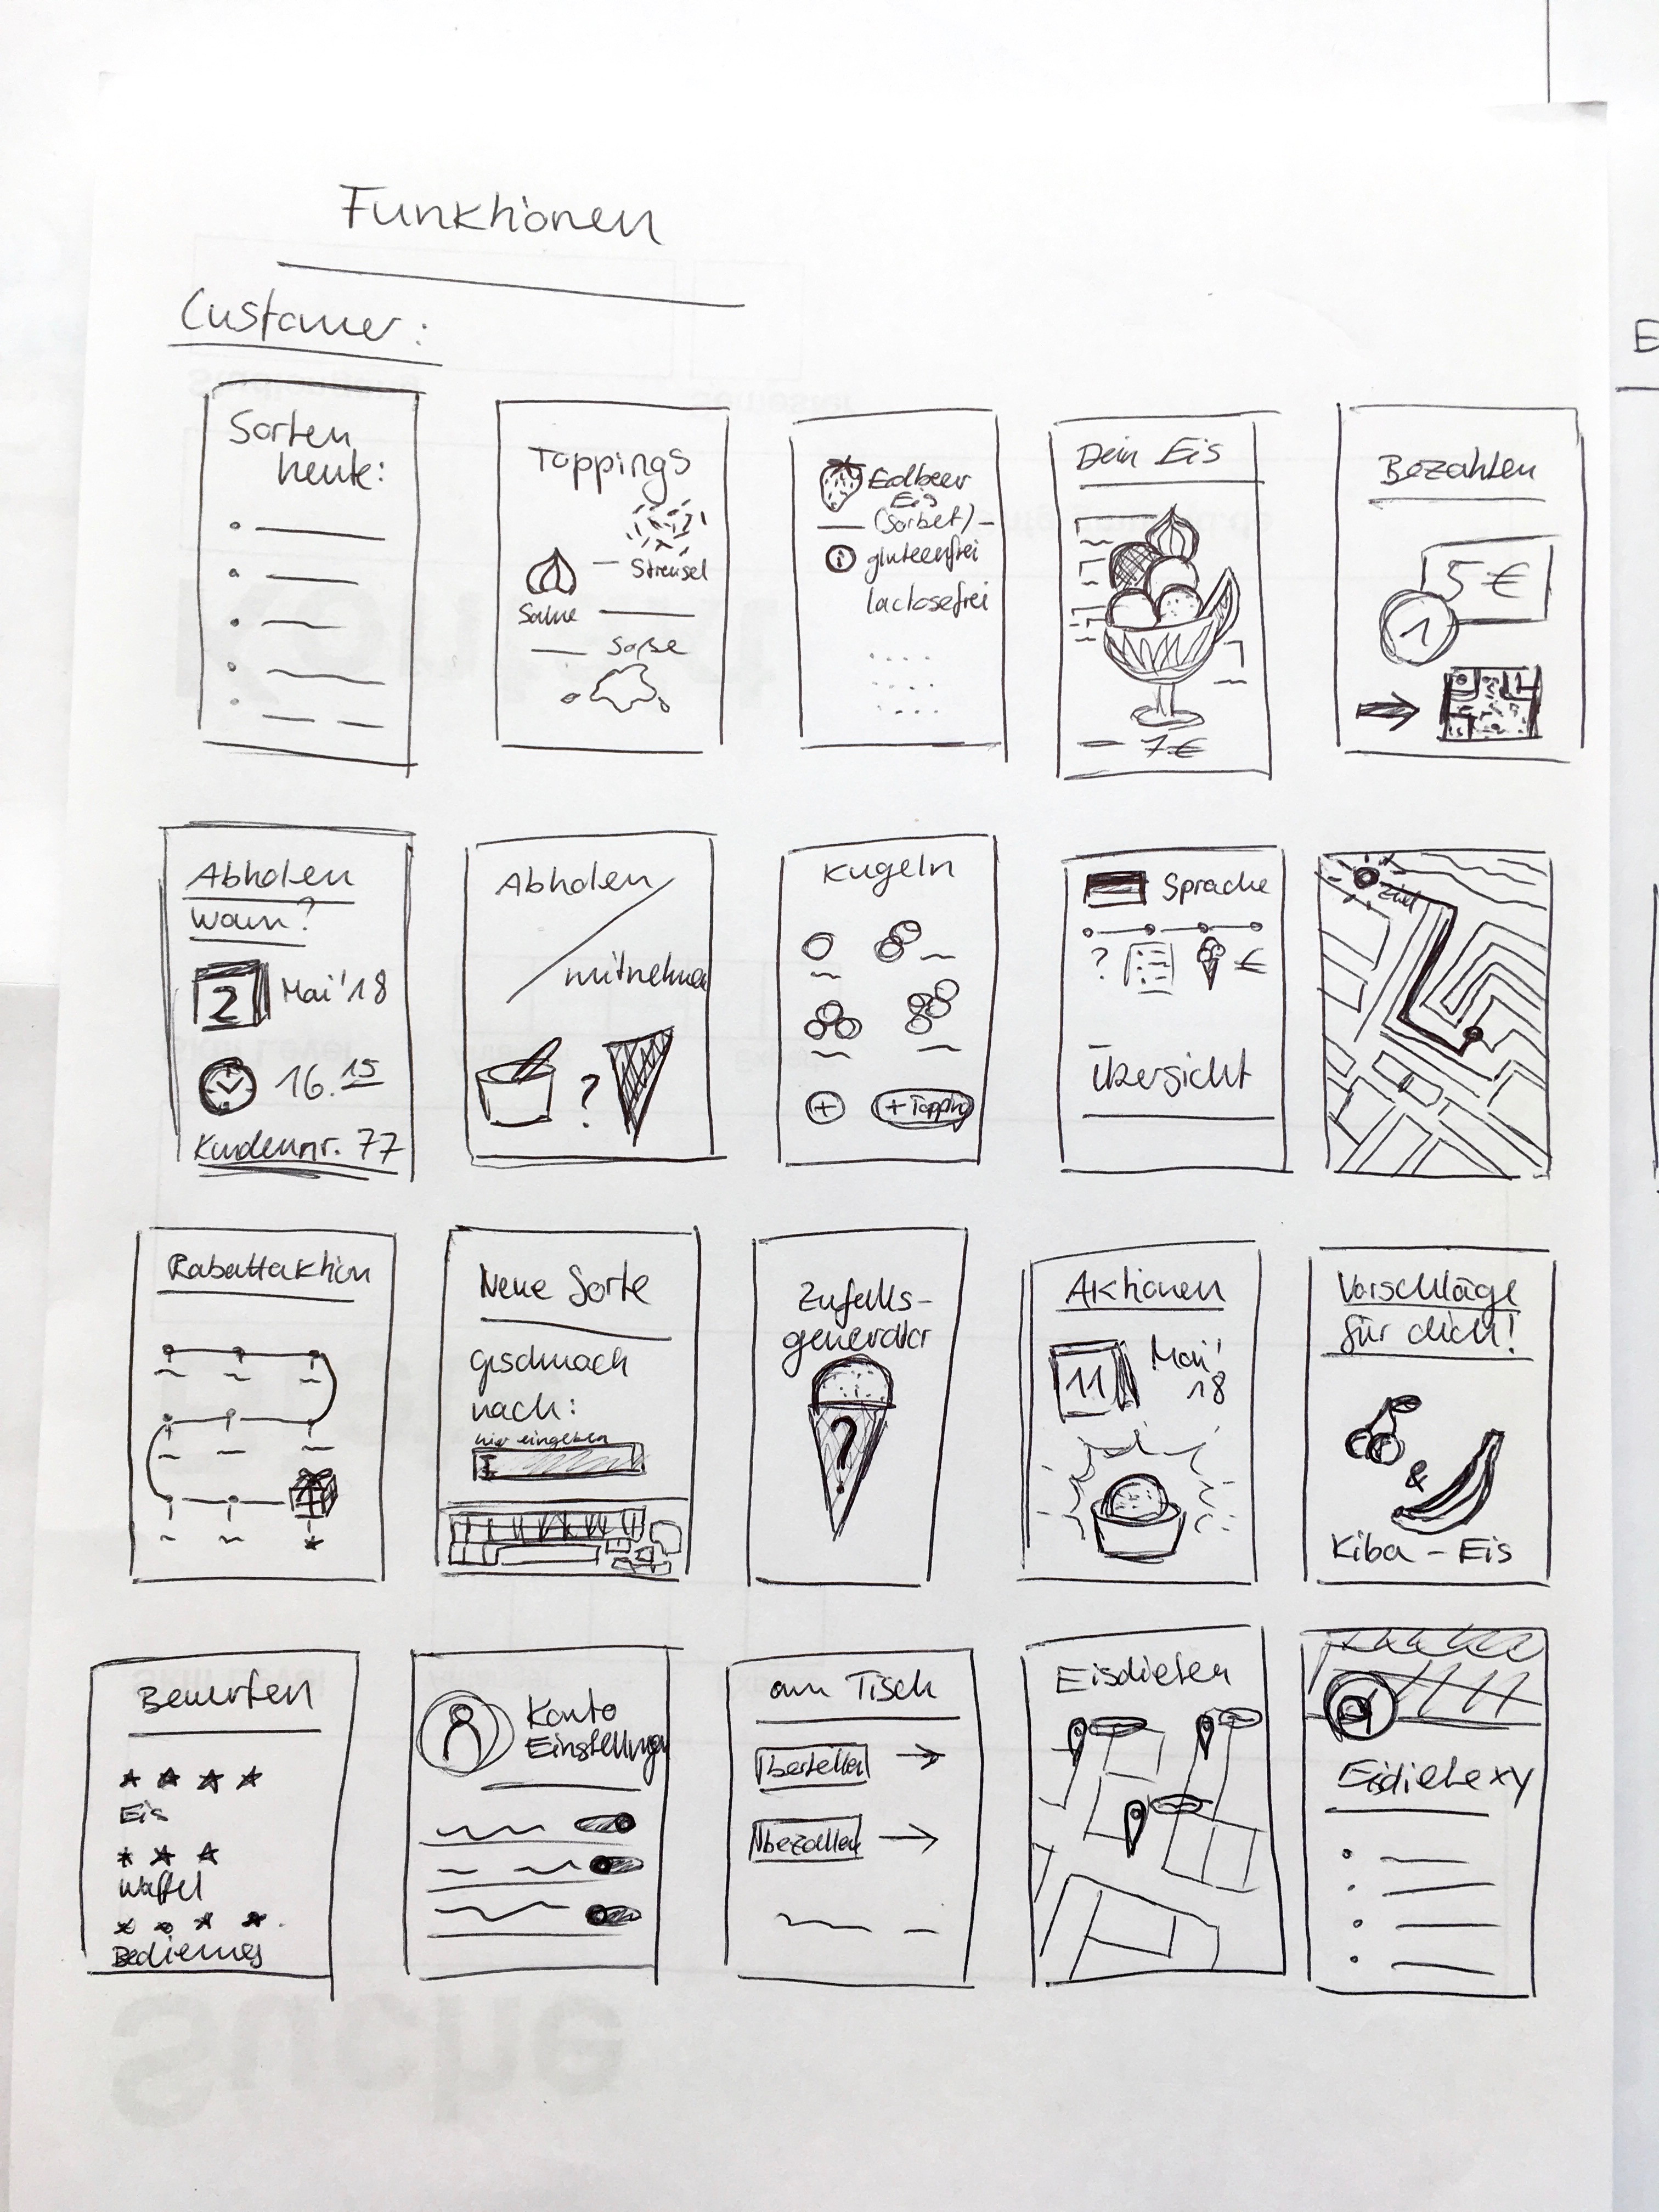 Funktionen
Customer:
Sorten
heute:
Toppings
Streusel
Sahne
Soße
Erdbeer
Eis
(Sorbet)
i
glutenfrei
lactosefrei
Dein Eis
7€
Bezahlen
5 €
1
Abholen
Wann?
2 Mai '18
16.15
Kundennr. 77
Abholen /
mitnehmen
?
Kugeln
+ + Topping
Sprache
? €
Übersicht
Ziel
Rabattaktion
Neue Sorte
geschmack
nach:
hier eingeben
Zufalls-
generator
?
Aktionen
11 Mai'
18
Vorschläge
für dich!
&
Kiba - Eis
Bewerten
Eis
Waffel
Bedienung
Konto
Einstellungen
am Tisch
bestellen
bezahlen
Eisdielen
Eisdiele xy
E